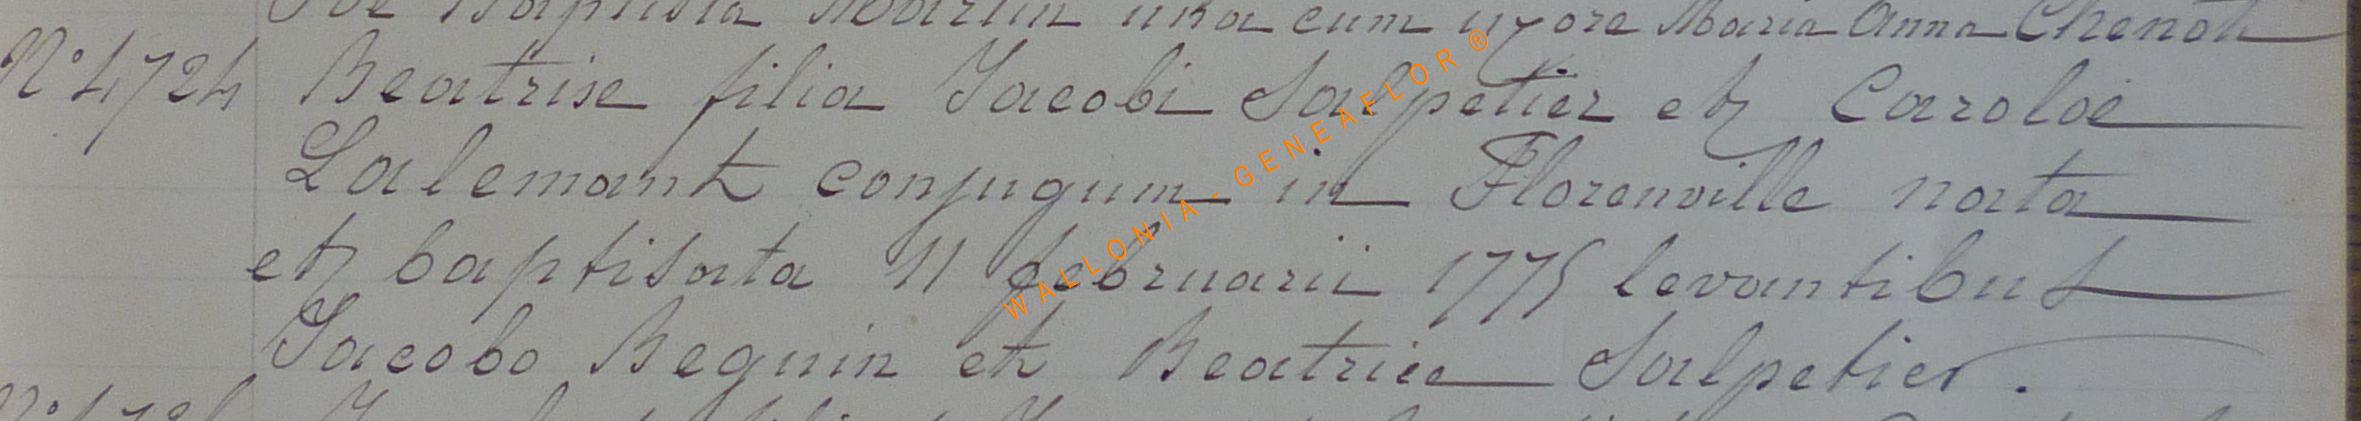 Joe Baptista Martin una cum uxore Maria Anna Chenot
N° 4724 Beatrise filia Jacobi Salpetier et Caroloe
Lalemant conjugum in Florenville nata
et baptisata 11 februarii 1775 levantibus
Jacobo Beguin et Beatrice Salpetier.
WALLONIA - GENEAFLOR ®